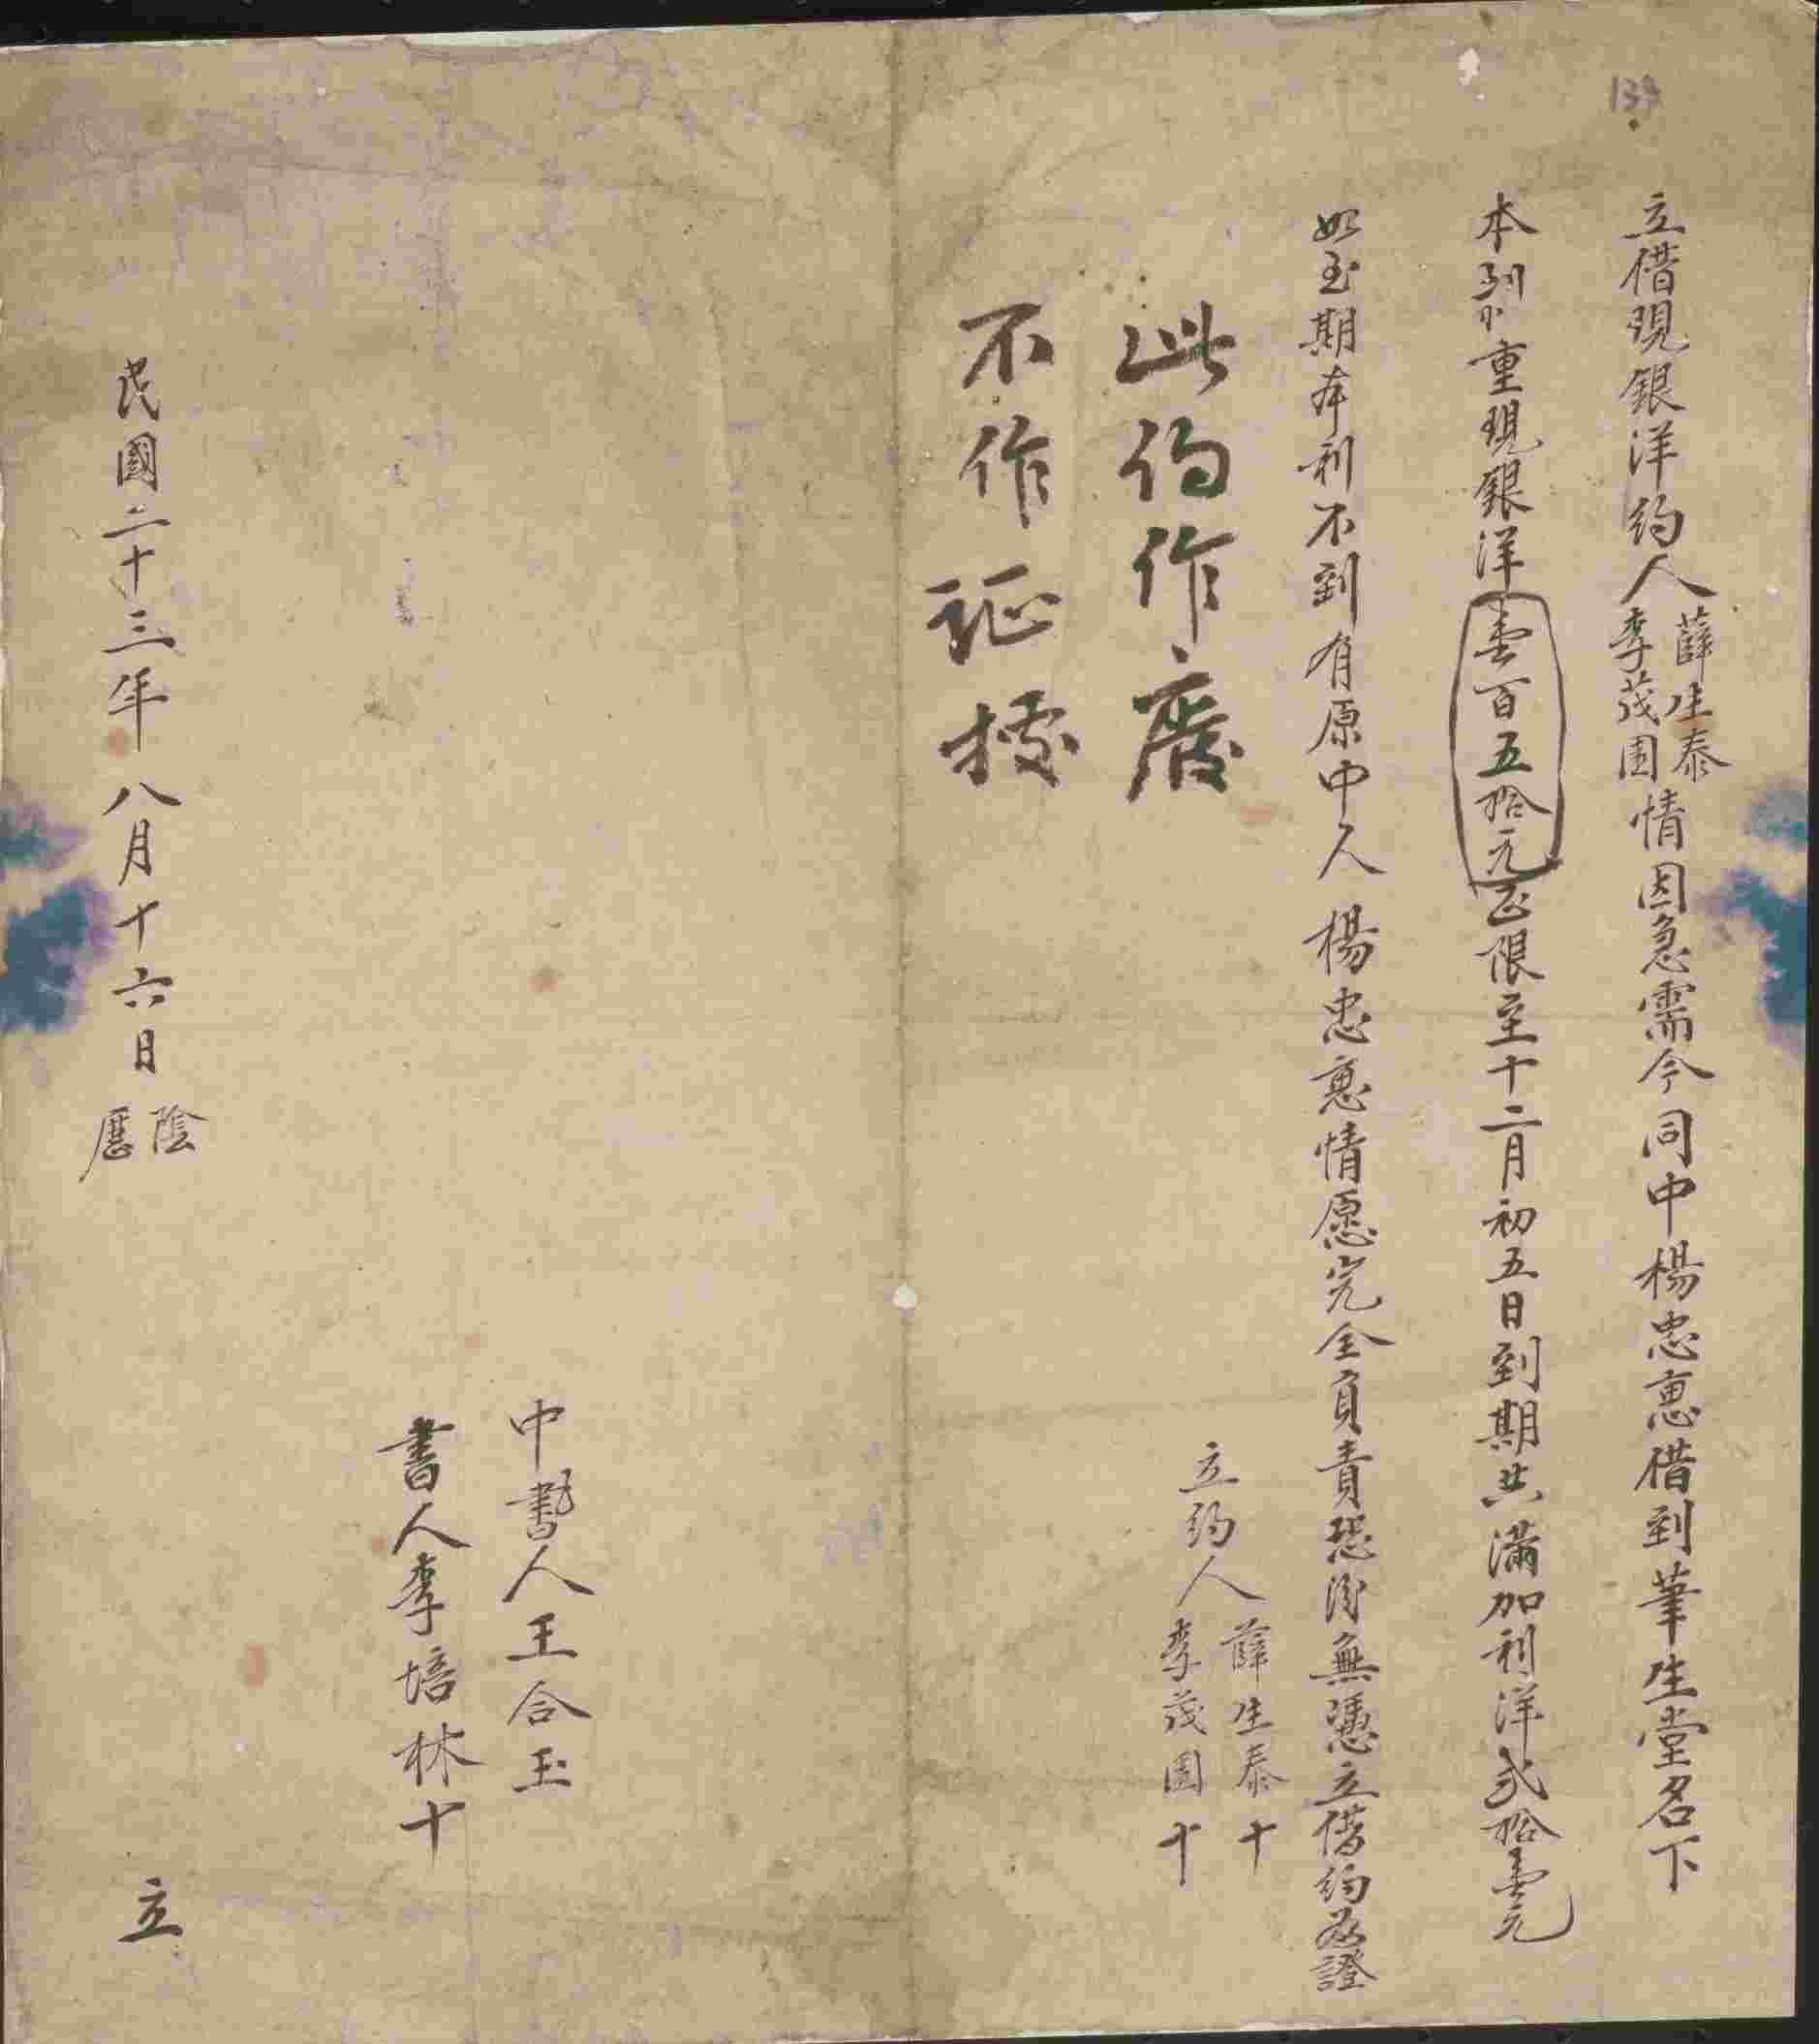 立借現銀洋約人薛生泰李茂園情因急需今同中楊忠惠借到筆生堂名下
本到小重現銀洋壹百五拾元正限至十二月初五日到期共滿加利洋弍拾壹元
如至期本利不到有原中人楊忠惠情愿完全負責恐後無憑立借約為證
立約人薛生泰十李茂園十
此約作廢
不作証據
中人王合玉
書人李培林十
民國二十三年八月十六日陰歷
立